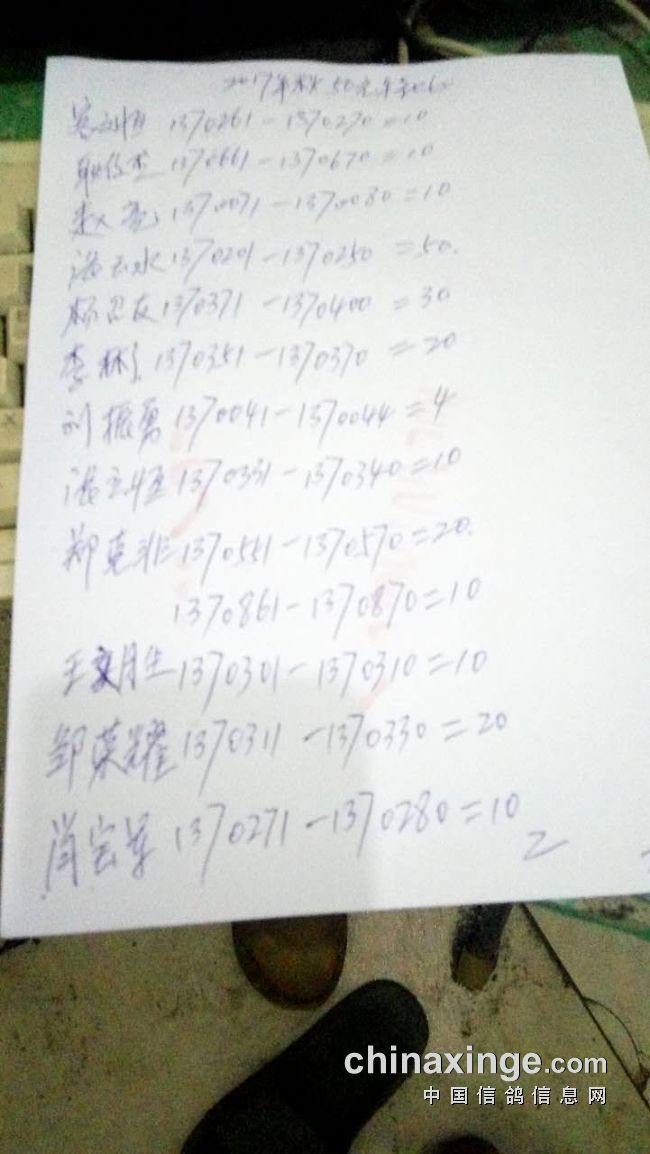 2017年秋50元
1370261-1370270=10
1370661-1370670=10
赵亮 1370071-1370080=10
1370201-1370250=50.
1370371-1370400=30
李林 1370351-1370370=20
刘振勇 1370041-1370044=4
1370331-1370340=10
郑克非 1370551-1370570=20.
1370861-1370870=10
王月生 1370301-1370310=10
邹荣耀 1370311-1370330=20
肖宏军 1370271-1370280=10
2
chinaxinge.com
中国信鸽信息网